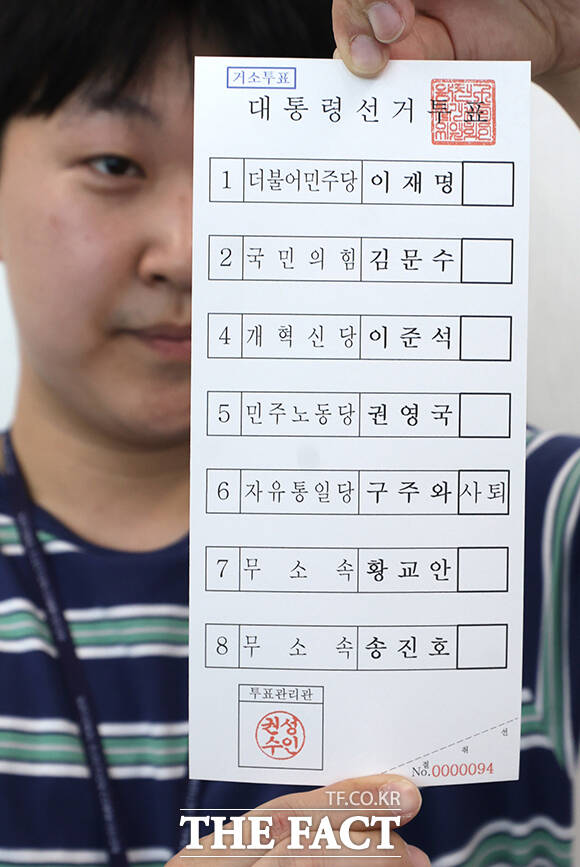 거소투표
대통령선거투표
1 더불어민주당 이재명
2 국민의힘 김문수
4 개혁신당 이준석
5 민주노동당 권영국
6 자유통일당 구주와 사퇴
7 무소속 황교안
8 무소속 송진호
투표관리관
권성
수인
절취선
No.0000094
TF.CO.KR
THE FACT